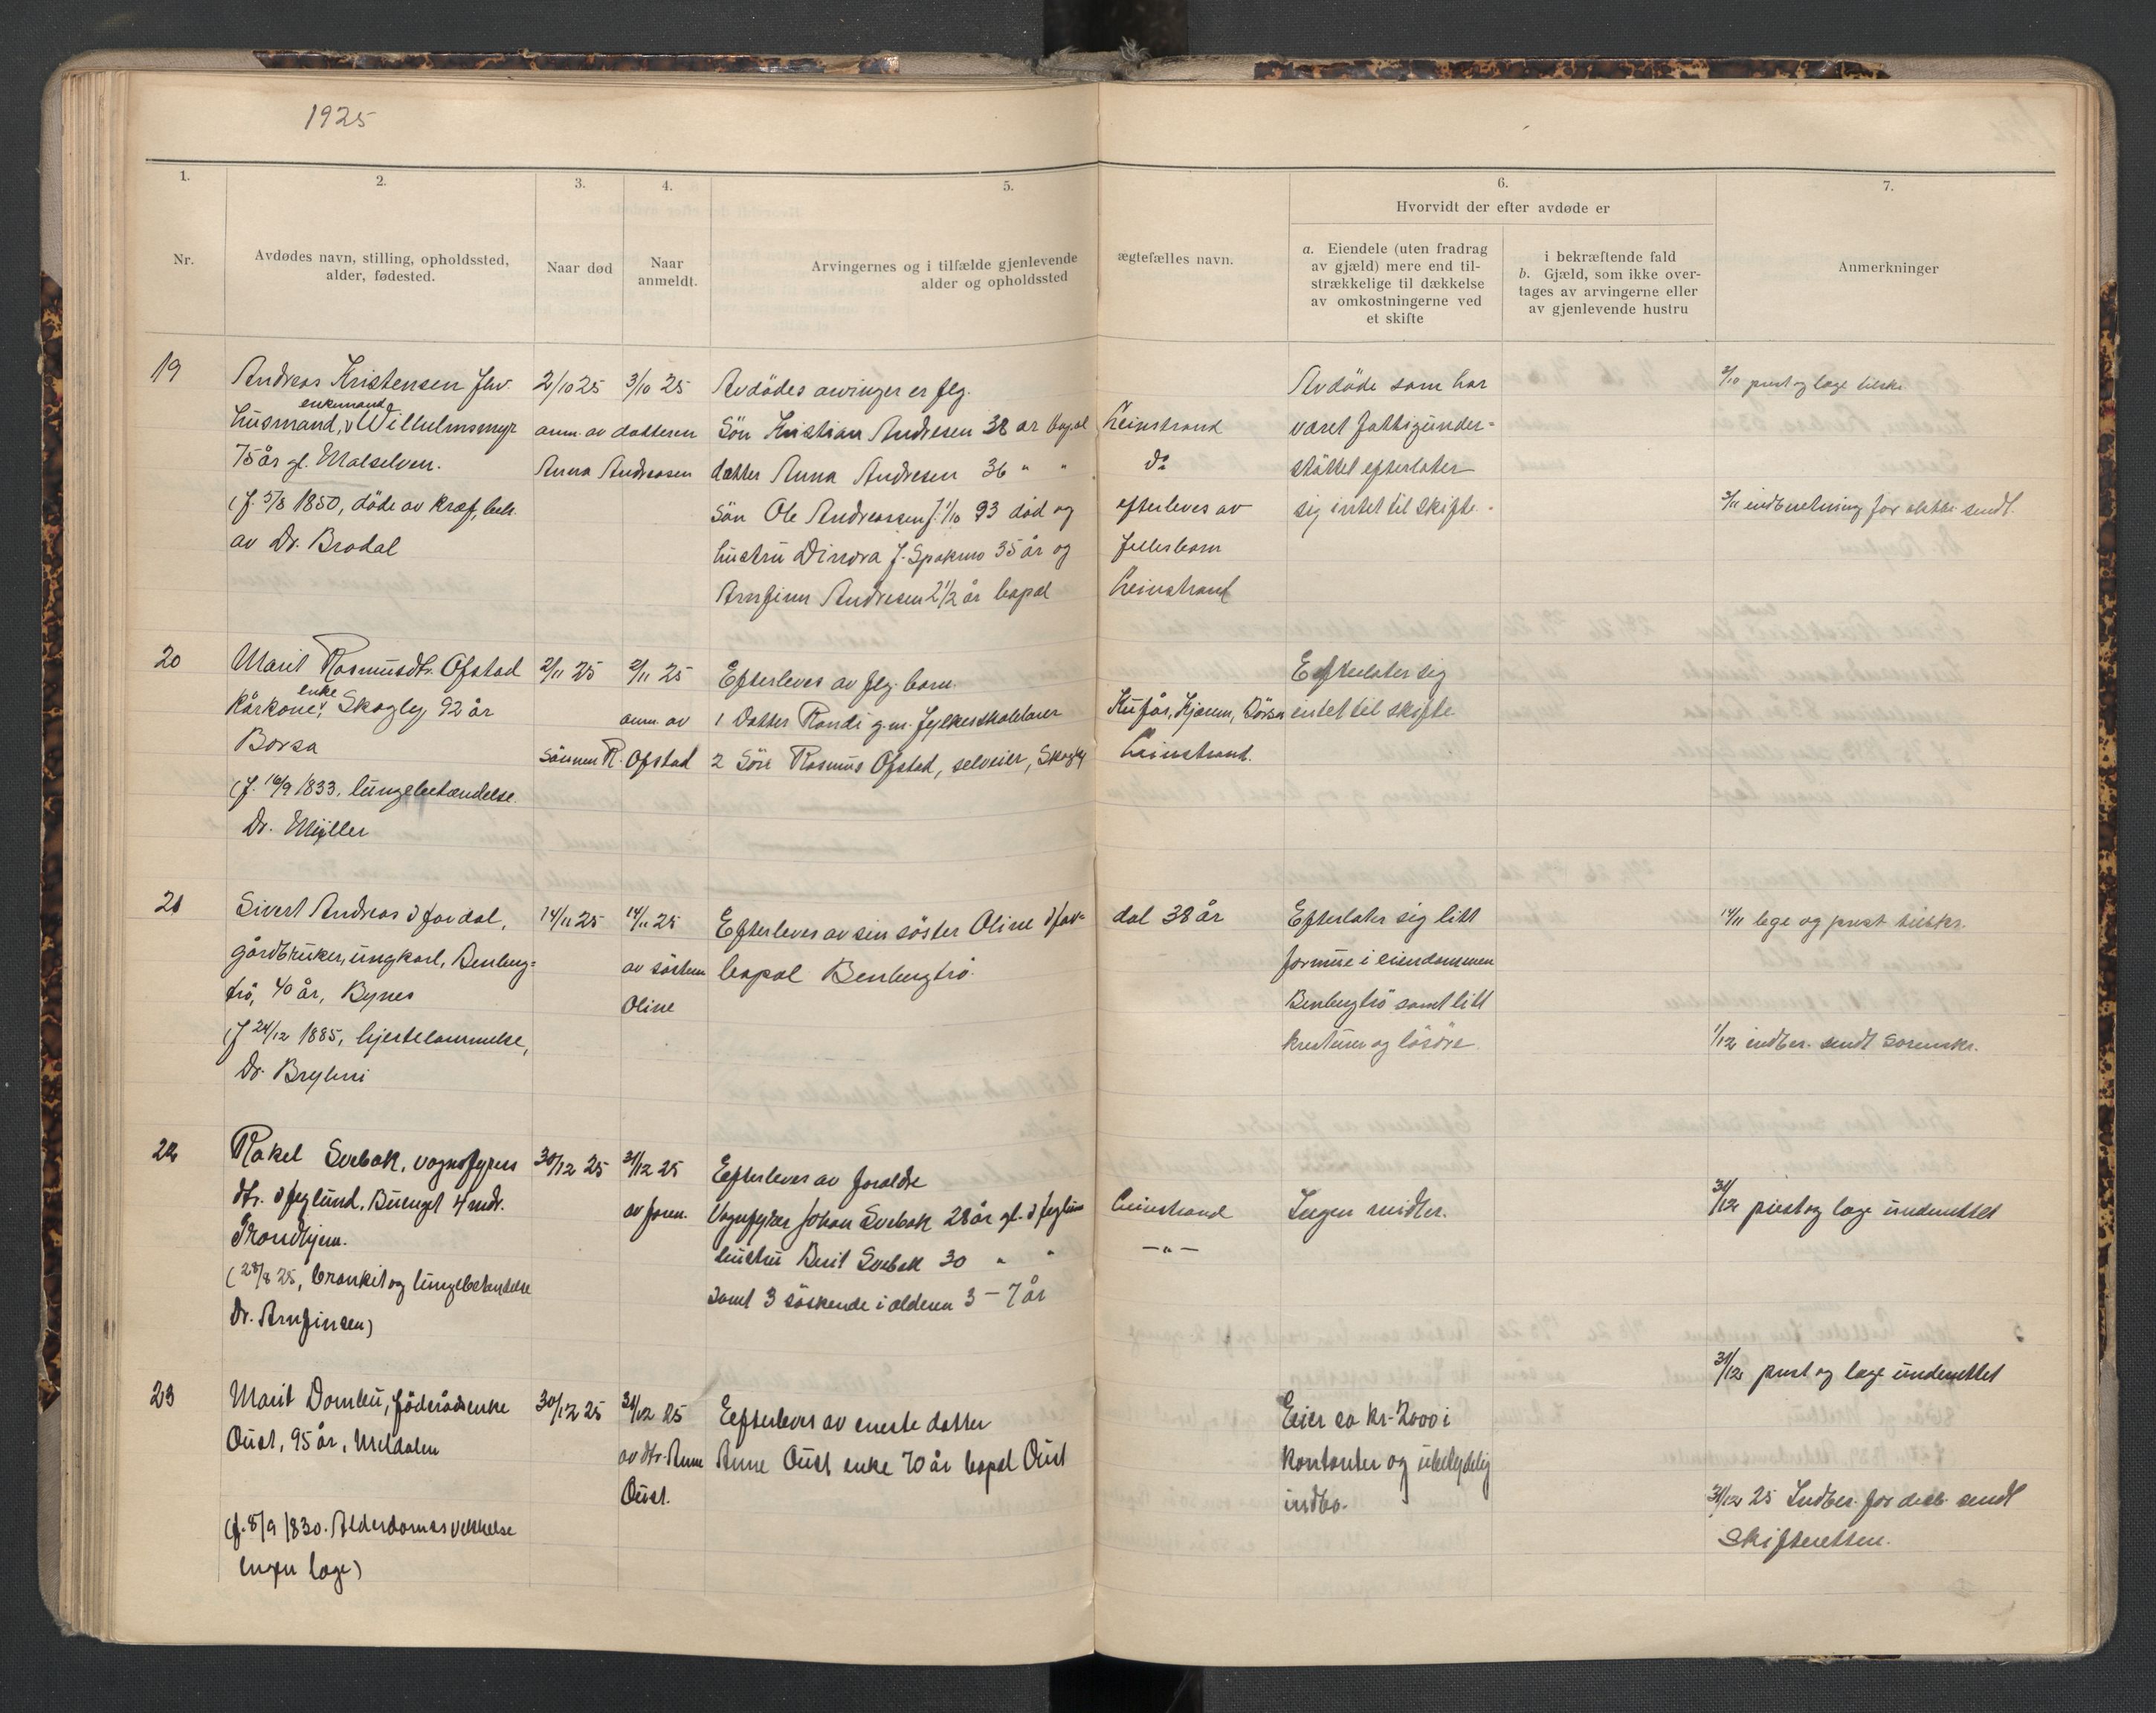 1925
1.
2.
3.
4.
5.
6.
7.
Nr.
Avdødes navn, stilling, opholdssted,
alder, fødested.
Naar død
Naar
anmeldt.
Arvingernes og i tilfælde gjenlevende
alder og opholdssted
ægtefælles navn.
Hvorvidt der efter avdøde er
a. Eiendele (uten fradrag
av gjæld) mere end til-
strækkelige til dækkelse
av omkostningerne ved
et skifte
i bekræftende fald
b. Gjæld, som ikke over-
tages av arvingerne eller
av gjenlevende hustru
Anmerkninger
19
Andreas Kristensen fhv.
husmand, enkemand, Willulmsmyr
75 år gl. Malselven.
(f. 5/8 1850, döde av kræf, beh.
av Dr. Brodal
2/10 25
3/10 25
anm. av datteren
Anna Andreasen
Avdödes arvinger er flg.
Sön Kristian Andresen 38 år bopæl Leinstrand
datter Anna Andresen 36 " " do
Sön Ole Andreassen f. 1/10 93 död og efterleves av
hustru Dinova f. Spakmo 35 år og fellesbarn
Arnfinn Andresen 2 1/2 år bopæl Leinstrand
Avdöde som har
været fattigunder=
stöttet efterlater
sig intet til skifte.
3/10 prest og læge tilskr.
3/11 indberetning for oktbr. sendt.
20
Marit Rasmusdtr. Ofstad
Kårkone, enke, Skogly 92 år
Børsa
(f. 16/9 1833, lungebetændelse.
Dr. Müller
2/11 25
2/11 25
anm. av
Sönnen R. Ofstad
Efterleves av flg. barn.
1 Datter Randi g.m. fylkesskolelærer
2 Sön Rasmus Ofstad, selveier, Skogly Leinstrand.
Efterlater sig
intet til skifte
21
Sivert Andreas Tfordal,
gårdbruker, ungkarl, Benberg=
trö, 40 år, Bynes
(f 24/12 1885, hjertelammelse,
Dr. Bryhni
14/11 25
14/11 25
av söstern
Oline
Efterleves av sin söster Oline
dal 38 år
bopæl Benbergtrö.
Efterlater sig litt
formue i eiendommen
Benbergtrö samt litt
kreaturer og lösöre.
14/11 lege og prest tilskr.
1/12 indber. sendt Sorenskr.
22
Rakel Svebak, vognsfyrers
dtr. Teglund, Buenget 4 mdr.
Trondhjem.
(28/8 25, bronkit og lungebetendelse
Dr. Arnfinsen)
30/12 25
31/12 25
av faren.
Efterleves av foreldre
Vognfyrer Johan Svebak 28 år gl. Teglun Leinstrand
hustru Berit Svebak 30 " " — " —
samt 3 söskende i alderen 3 – 7 år
Ingen midler.
31/12 prest og læge underrettet
23
Marit Dombu, föderådsenke
Oust, 95 år, Meldalen
(f. 8/9 1830. Alderdomssvekkelse
Ingen læge)
30/12 25
31/12 25
av dtr. Anne
Oust.
Efterleves av eneste datter
Anne Oust enke 70 år bopæl Oust
Eier ca kr. 2000 i
kontanter og ubetydelig
indbo.
31/12 prest og læge underrettet
31/12 25 Indber. for desb. sendt
Skifteretten.